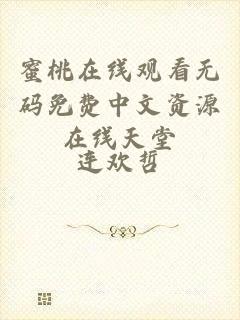 蜜桃在线观看无
码免费中文资源
在线天堂
连欢哲